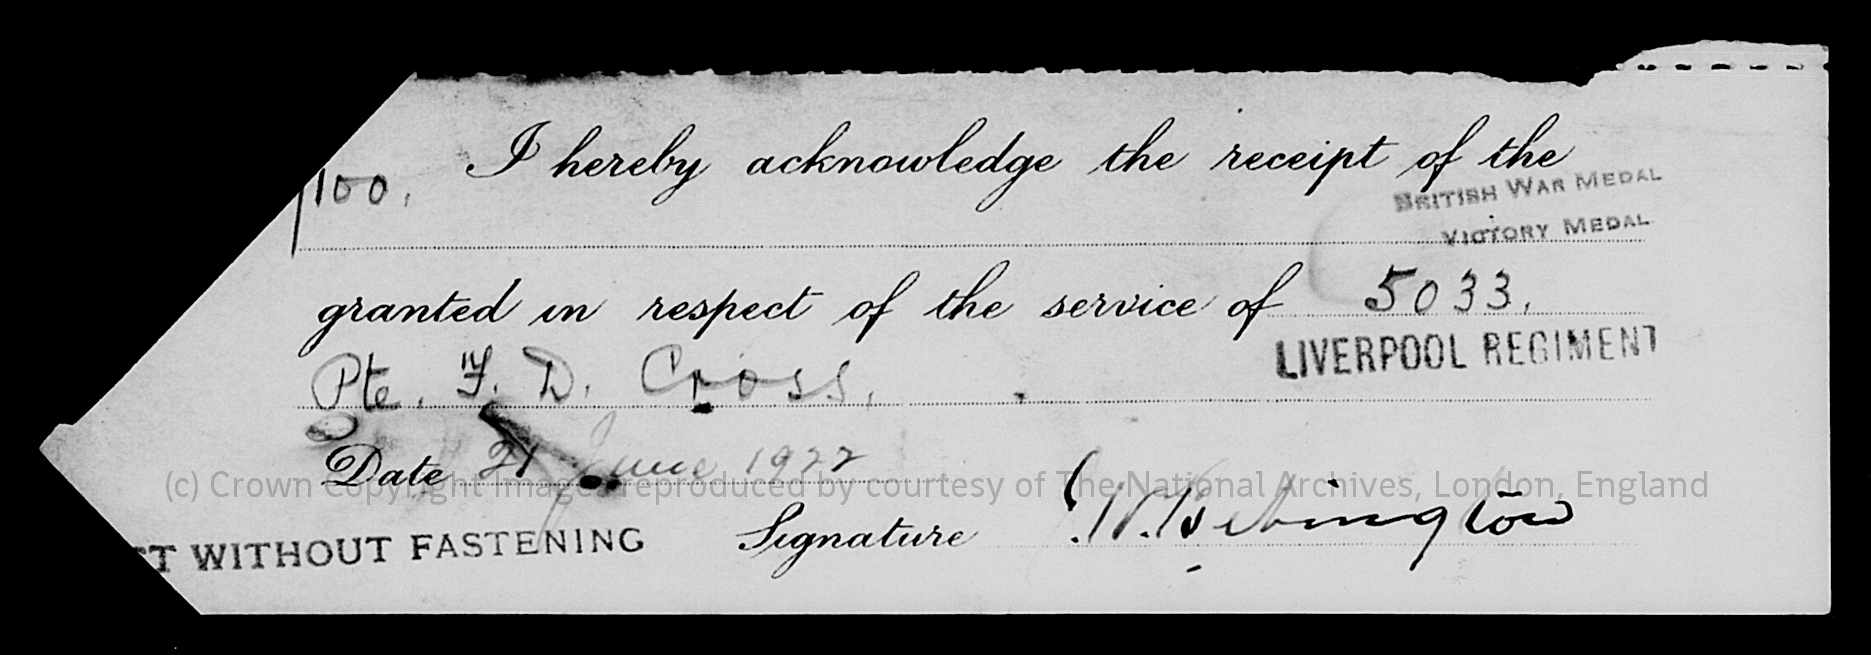 I hereby acknowledge the receipt of the
100.
BRITISH WAR MEDAL
VICTORY MEDAL
granted in respect of the service of 5033.
LIVERPOOL REGIMENT
Pte. F. D. Cross.
Date 21 June 1922
(c) Crown Copyright Images reproduced by courtesy of The National Archives, London, England
Signature
T WITHOUT FASTENING